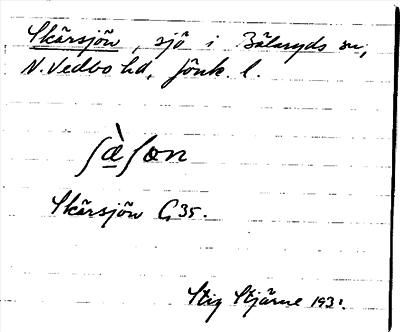 Skärsjön, sjö i Bälaryds sn,
N. Vedbo hd, Jönk. l.
ʃæ̀ʃøn
Skärsjön G 35.
Stig Stjärne 1931.